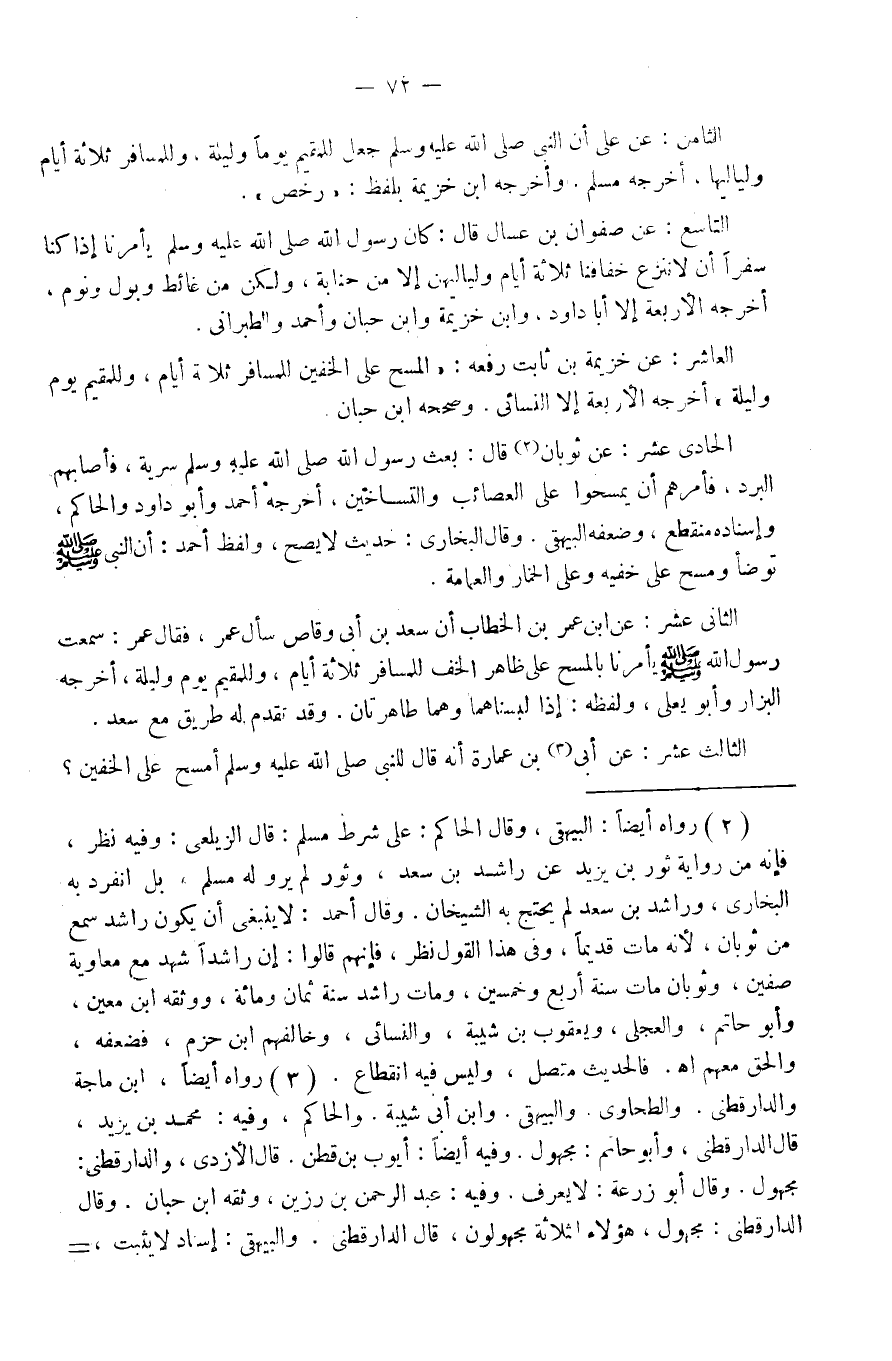 — ٧٢ —
الثامن : عن على أن النبى صلى الله عليه وسلم جعل للمقيم يوماً وليلة ، وللمسافر ثلاثة أيام
ولياليها ، أخرجه مسلم . وأخرجه ابن خزيمة بلفظ : « رخص » .
التاسع : عن صفوان بن عسال قال : كان رسول الله صلى الله عليه وسلم يأمرنا إذا كنا
سفراً أن لا ننزع خفافنا ثلاثة أيام ولياليهن إلا من جنابة ، ولكن من غائط وبول ونوم ،
أخرجه الأربعة إلا أبا داود ، وابن خزيمة وابن حبان وأحمد والطبرانى .
العاشر : عن خزيمة بن ثابت رفعه : « المسح على الخفين للمسافر ثلاثة أيام ، وللمقيم يوم
وليلة » أخرجه الأربعة إلا النسائى . وصححه ابن حبان .
الحادى عشر : عن ثوبان(٢) قال : بعث رسول الله صلى الله عليه وسلم سرية ، فأصابهم
البرد ، فأمرهم أن يمسحوا على العصائب والتساخين ، أخرجه أحمد وأبو داود والحاكم ،
وإسناده منقطع ، وضعفه البيهقى . وقال البخارى : حديث لا يصح ، ولفظ أحمد : أن النبى ﷺ
توضأ ومسح على خفيه وعلى الخمار والعمامة .
الثانى عشر : عن ابن عمر بن الخطاب أن سعد بن أبى وقاص سأل عمر ، فقال عمر : سمعت
رسول الله ﷺ يأمرنا بالمسح على ظاهر الخف للمسافر ثلاثة أيام ، وللمقيم يوم وليلة ، أخرجه
البزار وأبو يعلى ، ولفظه : إذا لبسناهما وهما طاهرتان . وقد تقدم له طريق مع سعد .
الثالث عشر : عن أبى(٣) بن عمارة أنه قال للنبى صلى الله عليه وسلم أمسح على الخفين ؟
( ٢ ) رواه أيضاً : البيهقى ، وقال الحاكم : على شرط مسلم : قال الزيلعى : وفيه نظر ،
فإنه من رواية ثور بن يزيد عن راشد بن سعد ، وثور لم يرو له مسلم ، بل انفرد به
البخارى ، وراشد بن سعد لم يحتج به الشيخان . وقال أحمد : لا ينبغى أن يكون راشد سمع
من ثوبان ، لأنه مات قديماً ، وفى هذا القول نظر ، فإنهم قالوا : إن راشداً شهد مع معاوية
صفين ، وثوبان مات سنة أربع وخمسين ، ومات راشد سنة ثمان ومائة ، ووثقه ابن معين ،
وأبو حاتم ، والعجلى ، ويعقوب بن شيبة ، والنسائى ، وخالفهم ابن حزم ، فضعفه ،
والحق معهم اه . فالحديث متصل ، وليس فيه انقطاع . ( ٣ ) رواه أيضاً ، ابن ماجة
والدارقطنى . والطحاوى . والبيهقى . وابن أبى شيبة . والحاكم ، وفيه : محمد بن يزيد ،
قال الدارقطنى ، وأبو حاتم : مجهول . وفيه أيضاً : أيوب بن قطن . قال الأزدى ، والدارقطنى :
مجهول . وقال أبو زرعة : لا يعرف . وفيه : عبد الرحمن بن رزين ، وثقه ابن حبان . وقال
الدارقطنى : مجهول ، هؤلاء الثلاثة مجهولون ، قال الدارقطنى . والبيهقى : إسناد لا يثبت ، =